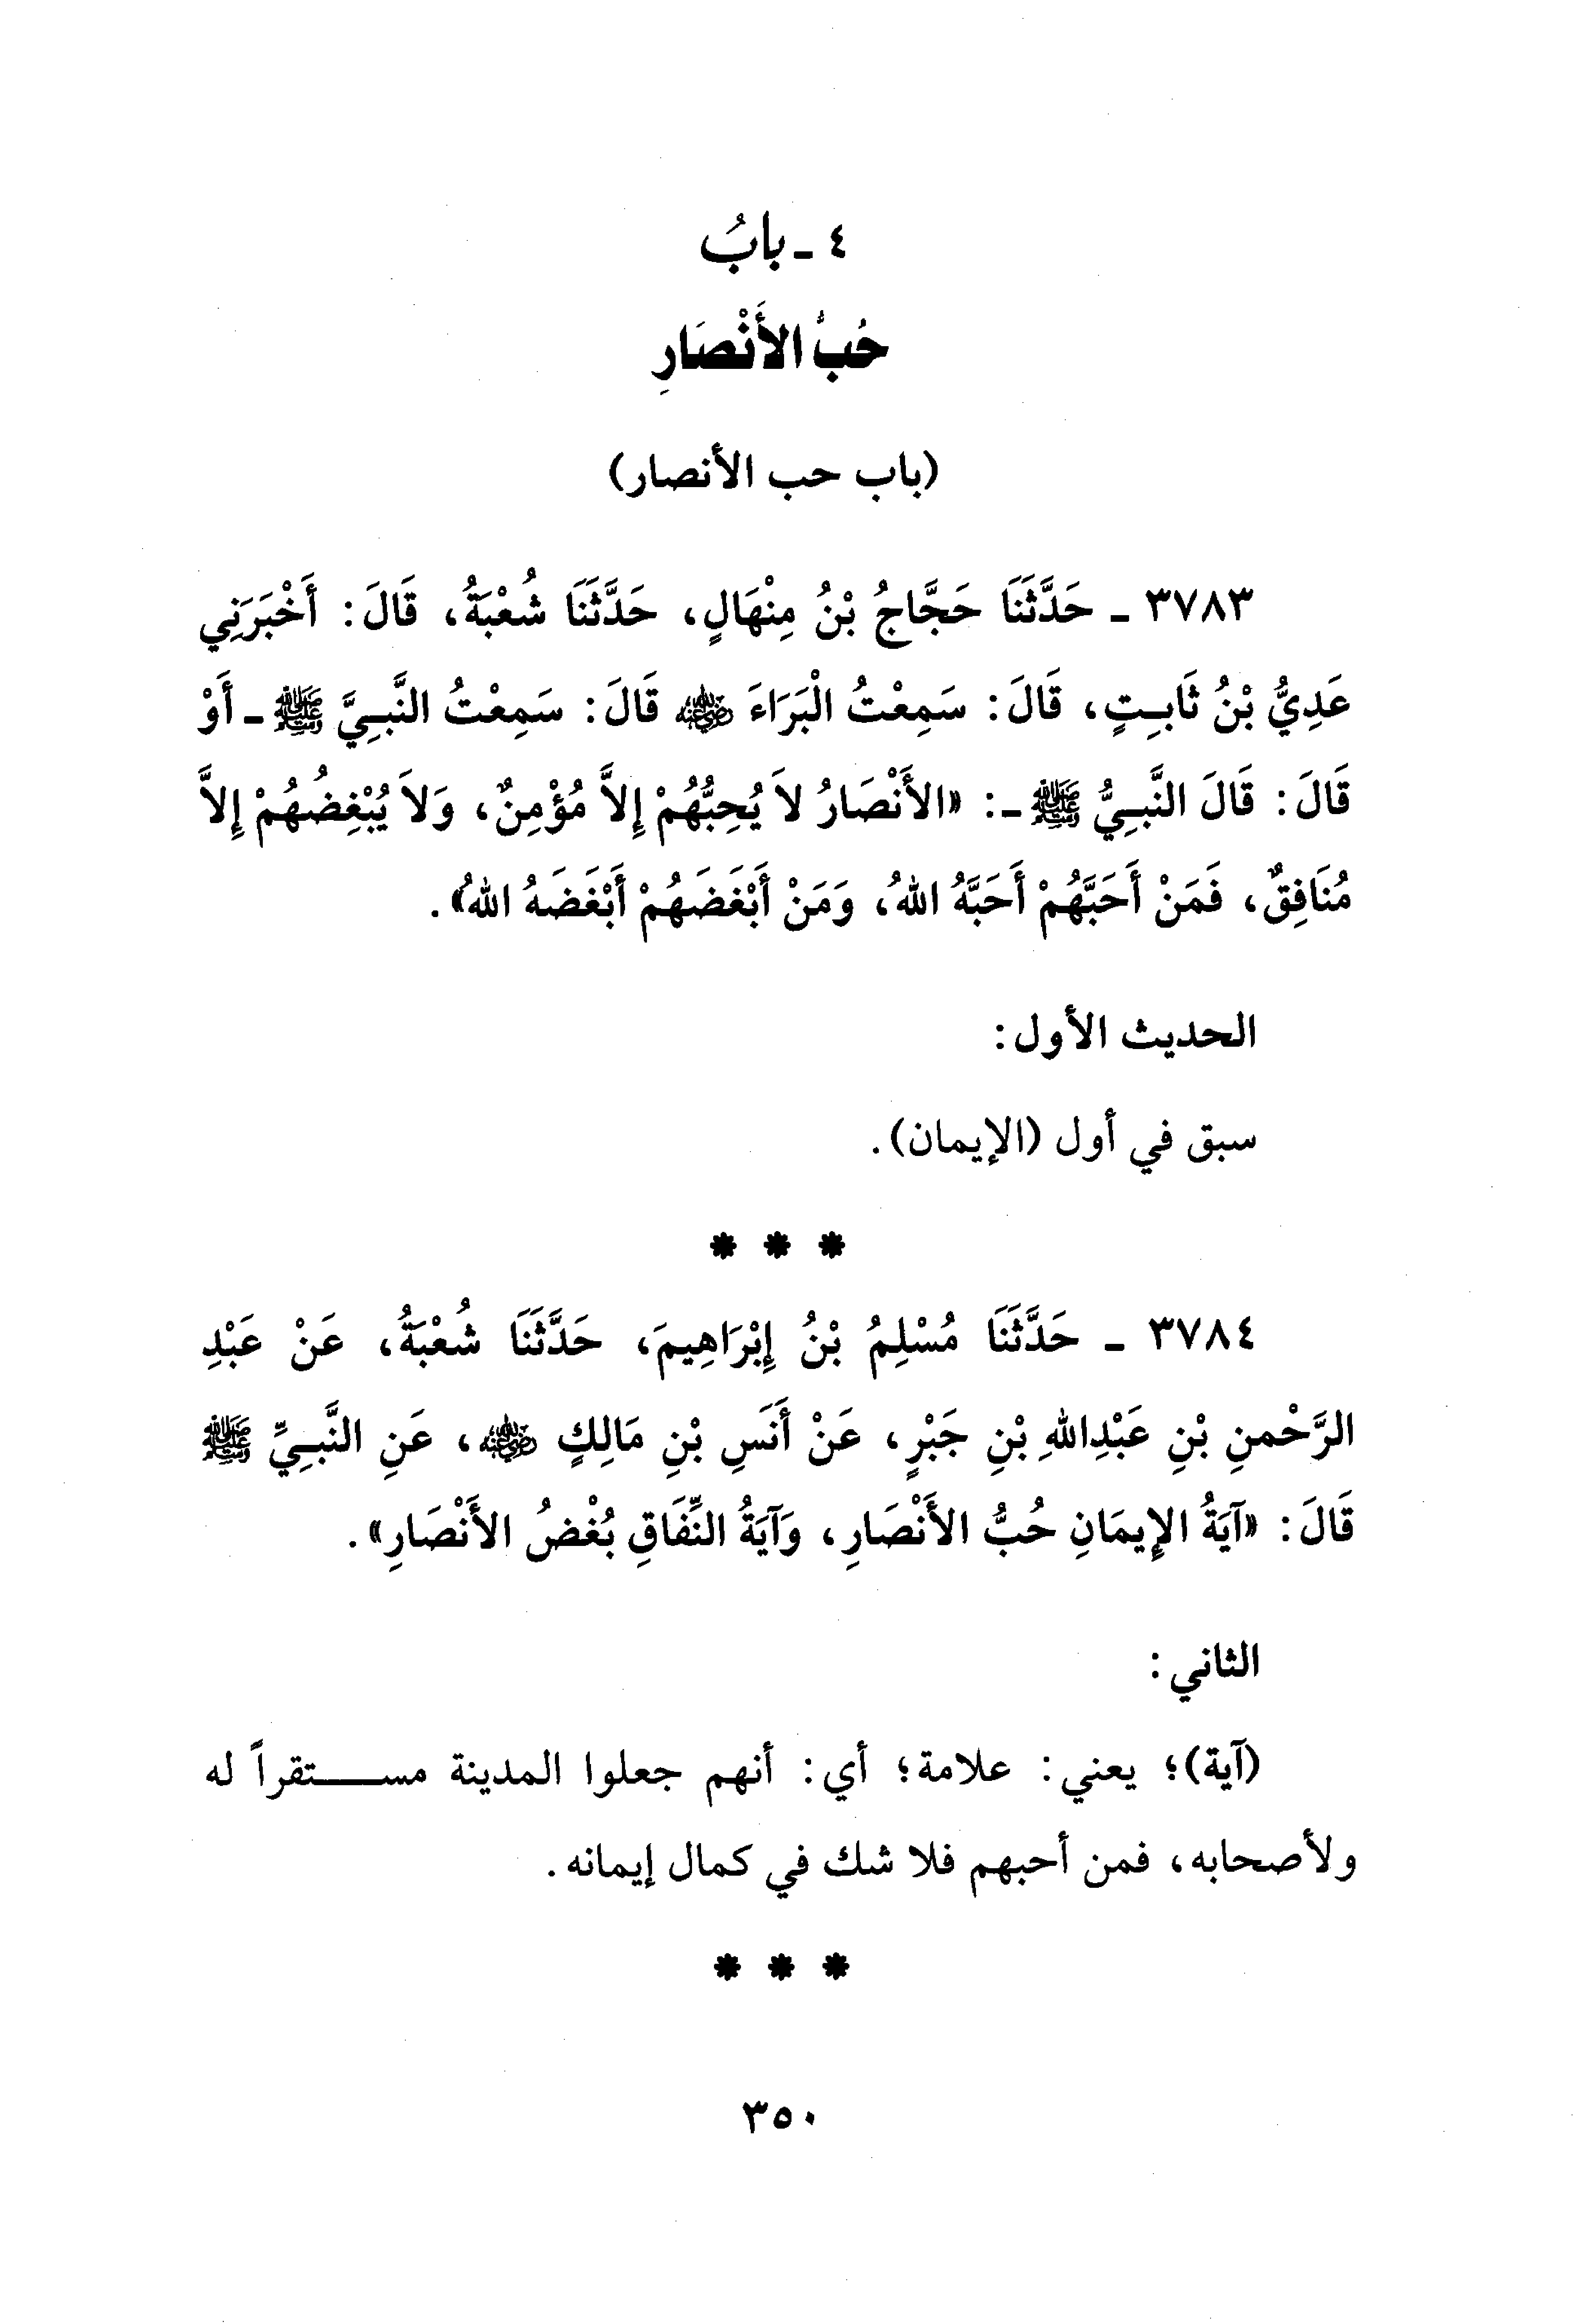 ٤ ـ بابُ
حُبُّ الأَنْصَارِ
(باب حب الأنصار)
٣٧٨٣ ـ حَدَّثَنَا حَجَّاجُ بْنُ مِنْهَالٍ، حَدَّثَنَا شُعْبَةُ، قَالَ: أَخْبَرَنِي
عَدِيُّ بْنُ ثَابِتٍ، قَالَ: سَمِعْتُ الْبَرَاءَ رضي الله عنه قَالَ: سَمِعْتُ النَّبِيَّ ﷺ ـ أَوْ
قَالَ: قَالَ النَّبِيُّ ﷺ ـ: «الأَنْصَارُ لاَ يُحِبُّهُمْ إِلاَّ مُؤْمِنٌ، وَلاَ يُبْغِضُهُمْ إِلاَّ
مُنَافِقٌ، فَمَنْ أَحَبَّهُمْ أَحَبَّهُ اللهُ، وَمَنْ أَبْغَضَهُمْ أَبْغَضَهُ اللهُ».
الحديث الأول:
سبق في أول (الإيمان).
* * *
٣٧٨٤ ـ حَدَّثَنَا مُسْلِمُ بْنُ إِبْرَاهِيمَ، حَدَّثَنَا شُعْبَةُ، عَنْ عَبْدِ
الرَّحْمنِ بْنِ عَبْدِاللهِ بْنِ جَبْرٍ، عَنْ أَنَسِ بْنِ مَالِكٍ رضي الله عنه، عَنِ النَّبِيِّ ﷺ
قَالَ: «آيَةُ الإِيمَانِ حُبُّ الأَنْصَارِ، وَآيَةُ النِّفَاقِ بُغْضُ الأَنْصَارِ».
الثاني:
(آية)؛ يعني: علامة؛ أي: أنهم جعلوا المدينة مستقراً له
ولأصحابه، فمن أحبهم فلا شك في كمال إيمانه.
* * *
٣٥٠